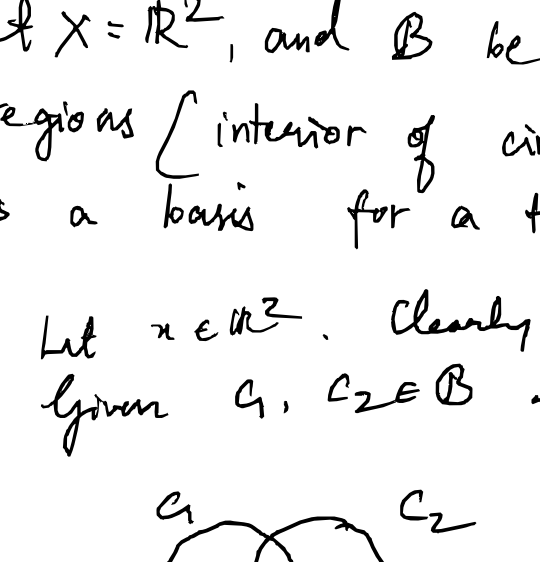 X = ℝ², and 𝔹 be
regions (interior of
a basis for a
Let x ∈ ℝ². Clearly
Given C₁, C₂ ∈ 𝔹
C₁ C₂